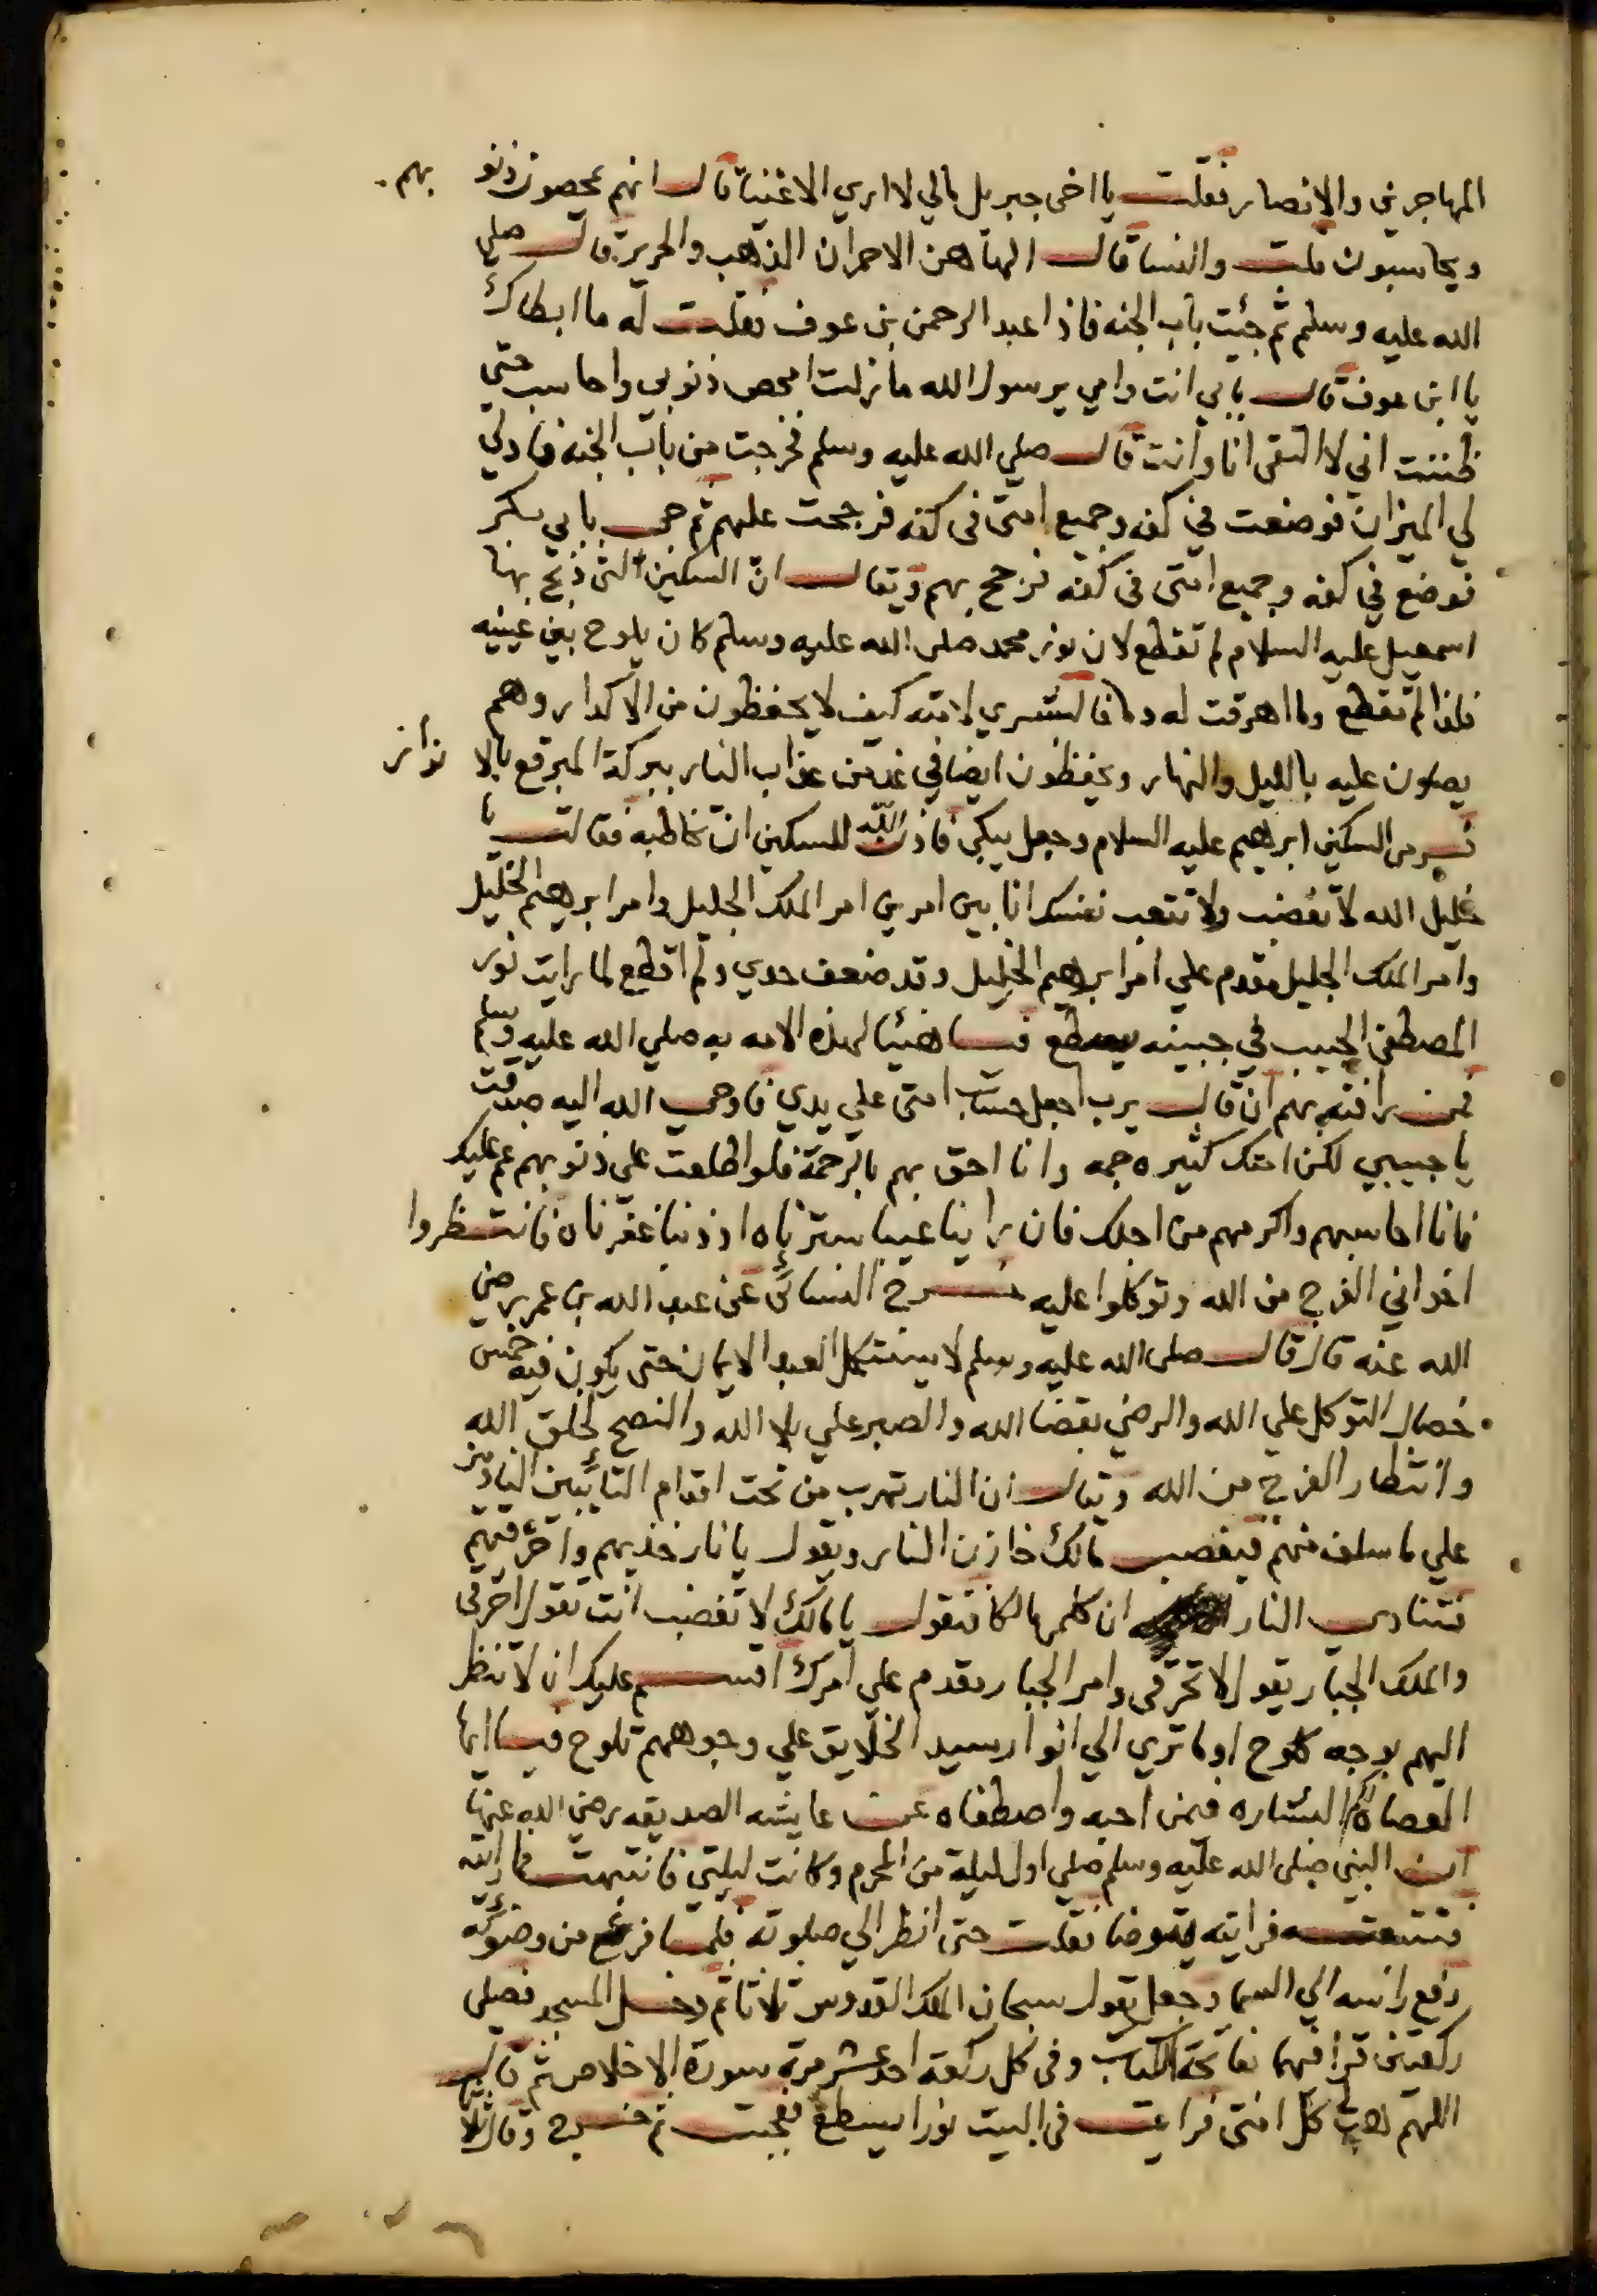 المهاجرين والانصار فقلت يا اخى جبريل مالي لا اري الاغنيا قال انهم يمحصون ذنو بهم
ويحاسبون قلت والنسا قال الهاهن الاحمران الذهب والحرير قال صلي
الله عليه وسلم ثم جئت باب الجنه فاذا عبد الرحمن بن عوف فقلت له ما ابطاك
يا ابن عوف قال بابي انت وامي يرسول الله ما زلت امحص ذنوبي واحاسب حتي
ظننت اني لا التقي انا وانت قال صلي الله عليه وسلم فخرجت من باب الجنه فادلي
لي الميزان فوضعت في كفه وجميع امتى فى كفه فرجحت عليهم ثم جي بابي بكر
فوضع في كفه وجميع امتى فى كفه فرجح بهم ويقال ان السكين التى ذبح بها
اسمعيل عليه السلام لم تقطع لان نور محمد صلى الله عليه وسلم كان يلوح بين عينيه
فلذا لم تقطع ولما اهرقت له دما فالبشري لامته كيف لا يحفظون من الاكدار وهم
يصلون عليه بالليل والنهار ويحفظون ايضا في غد من عذاب النار ببركة المبرقع بالا نوار
فرمى السكين ابرهيم عليه السلام وجعل يبكي فاذن الله للسكين ان تخاطبه فقالت يا
خليل الله لا تغضب ولا تتعب نفسك انا بين امرين امر الملك الجليل وامر ابرهيم الخليل
وامر الملك الجليل مقدم علي امر ابرهيم الخليل وقد ضعف حدي ولم اقطع لما رايت نور
المصطفى الحبيب في جبينه يسطع فيا هنيئا لهذه الامه به صلي الله عليه وسلم
فمن رافته بهم ان قال يرب اجعل حساب امتى علي يدي فاوحي الله اليه صدقت
يا حبيبي لكن امتك كثيره جمه وانا احق بهم بالرحمة فلو اطلعت على ذنوبهم عم عليك
فانا احاسبهم واكرمهم من اجلك فان راينا عيبا سترناه او ذنبا غفرناه فانتظروا
اخواني الفرج من الله وتوكلوا عليه خرج النسائي عن عبد الله بن عمر رضي
الله عنه قال قال صلى الله عليه وسلم لا يستكمل العبد الايمان حتى يكون فيه خمس
خصال التوكل علي الله والرضي بقضا الله والصبر علي بلا الله والنصح لخلق الله
وانتظار الفرج من الله ويقال ان النار تهرب من تحت اقدام التائبين النادمين
علي ما سلف منهم فيغضب مالك خازن النار ويقول يا نار خذيهم واحرقيهم
فتنادي النار ان كلمها لكا فتقول يا مالك لا تغضب انت تقول احرقي
والملك الجبار يقول لا تحرقي وامر الجبار مقدم علي امرك اقسم عليك ان لا تنظر
اليهم بوجه كلوح او ما تري الي انوار سيد الخلايق علي وجوههم تلوح فيا ايها
العصاة لكم البشاره فمن احبه واصطفاه عن عايشه الصديقه رضي الله عنها
ان النبي صلى الله عليه وسلم صلي اول ليلة من المحرم وكانت ليلتي فانتبهت فما رايته
فتتبعته فرايته يتوضا فقلت حتى انظر الي صلوته فلما فرغ من وضوئه
رفع راسه الي السما وجعل يقول سبحان الملك القدوس ثلاثا ثم دخل المسجد فصلي
ركعتين قرا فيهما بفاتحة الكتاب وفى كل ركعة احد عشر مرة سورة الاخلاص ثم قال
اللهم هب كل امتى فرايت فى البيت نورا يسطع فعجبت ثم خرج وقال ثلاثا